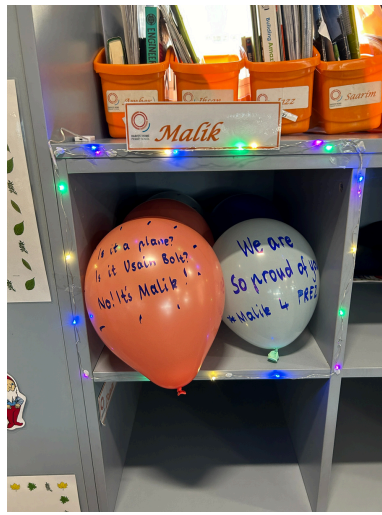 Saarim
Malik
Is it a plane?
Is it Usain Bolt?
No! It's Malik!
We are
So proud of
Malik 4 PREZ